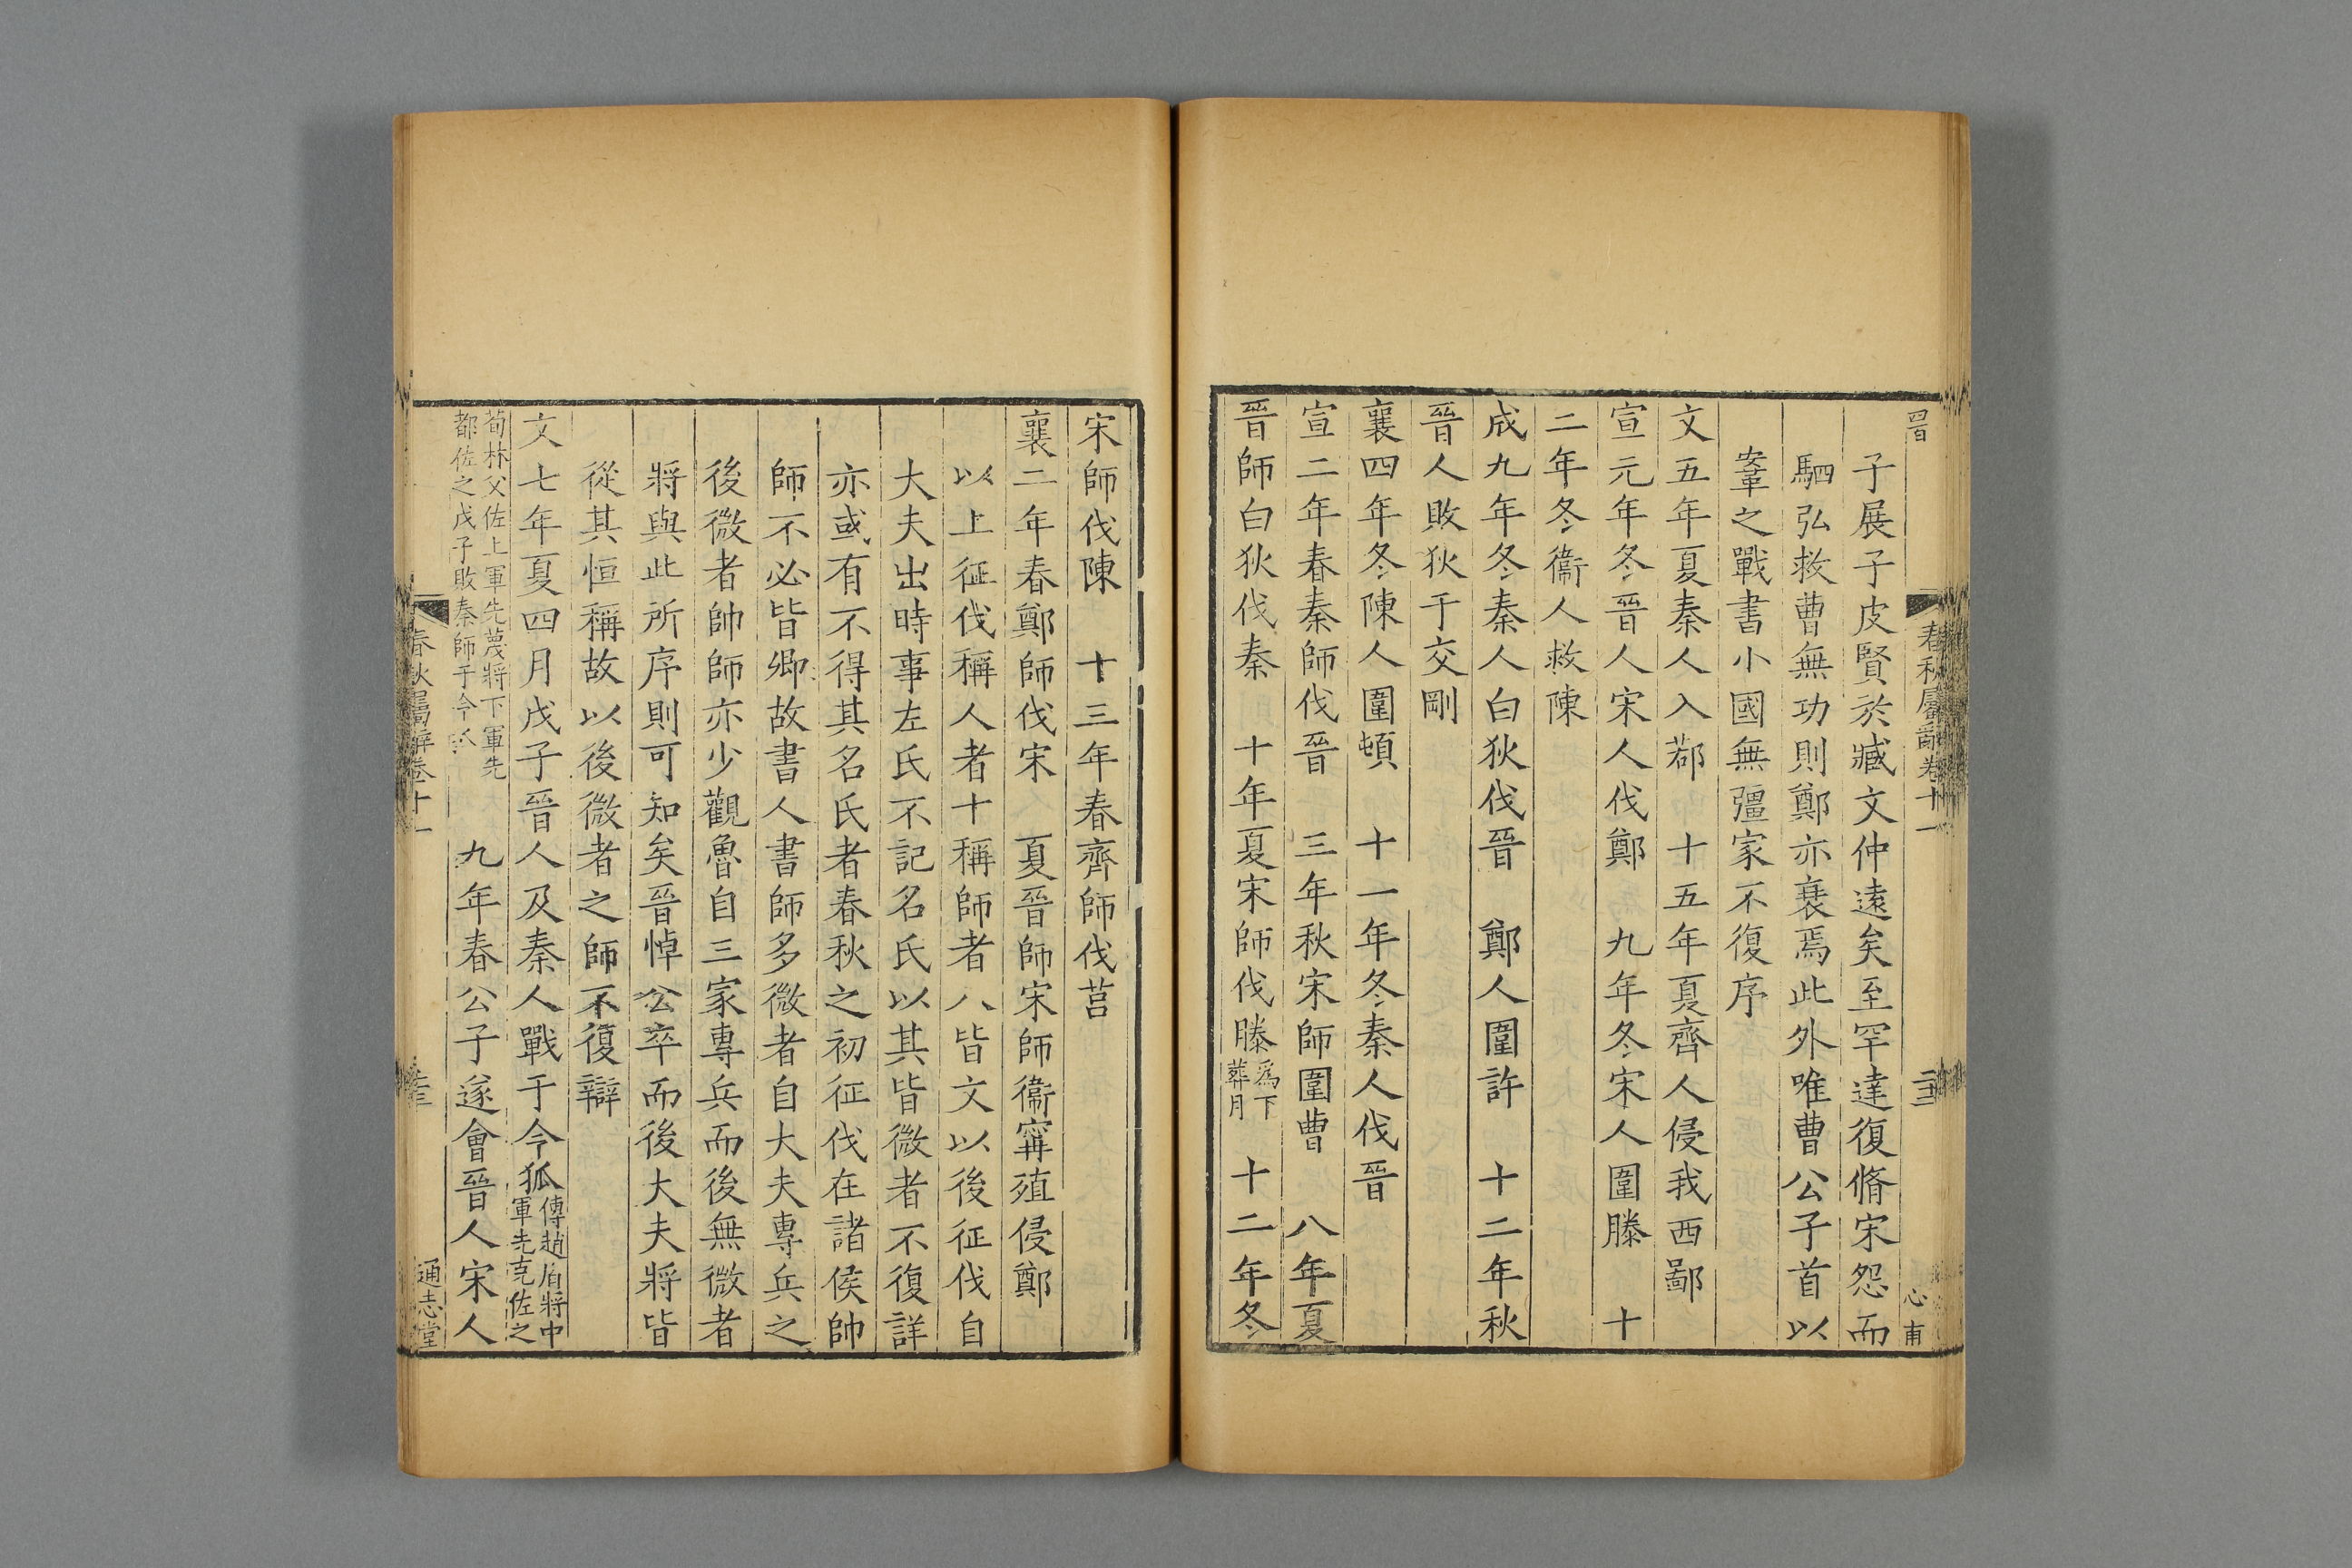 子展子皮賢於臧文仲遠矣至罕達復脩宋怨而
駟弘救曹無功則鄭亦衰焉此外唯曹公子首以
鞌之戰書小國無彊家不復序
文五年夏秦人入鄀　十五年夏齊人侵我西鄙
宣元年冬晉人宋人伐鄭　九年冬宋人圍滕　十
二年冬衞人救陳
成九年冬秦人白狄伐晉　鄭人圍許　十二年秋
晉人敗狄于交剛
襄四年冬陳人圍頓　十一年冬秦人伐晉
宣二年春秦師伐晉　三年秋宋師圍曹　八年夏
晉師白狄伐秦　十年夏宋師伐滕爲下葬月　十二年冬
宋師伐陳　十三年春齊師伐莒
襄二年春鄭師伐宋　夏晉師宋師衞甯殖侵鄭
以上征伐稱人者十稱師者八皆文以後征伐自
大夫出時事左氏不記名氏以其皆微者不復詳
亦或有不得其名氏者春秋之初征伐在諸侯帥
師不必皆卿故書人書師多微者自大夫專兵之
後微者帥師亦少觀魯自三家專兵而後無微者
將與此所序則可知矣晉悼公卒而後大夫將皆
從其恒稱故以後微者之師不復辯
文七年夏四月戊子晉人及秦人戰于令狐傳趙盾將中軍先克佐之
荀林父佐上軍先蔑將下軍先都佐之戊子敗秦師于令狐　九年春公子遂會晉人宋人
春秋屬辭卷十一
通志堂